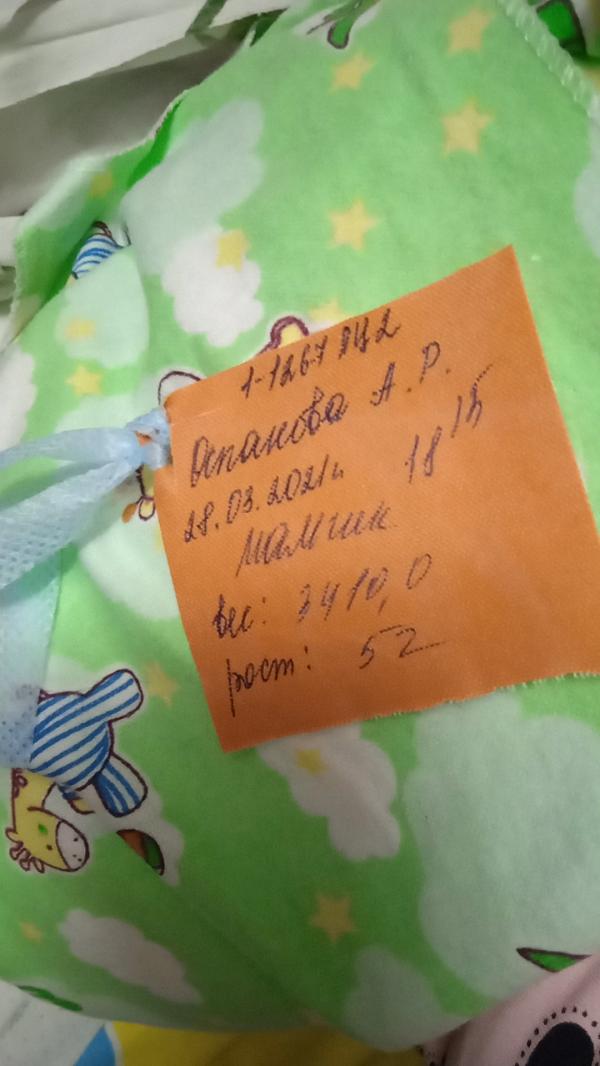 1-1267 РЦ2
Оспанова А. Р.
28.03.2021г. 18 15
мальчик
вес: 3410,0
рост: 52